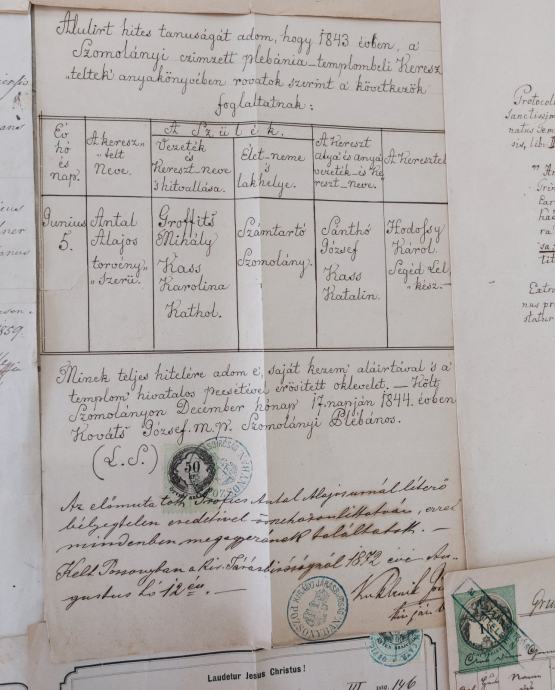 Alulirt hites tanuságát adom, hogy 1843 évben, a
Szomolányi czimzett plebánia-templombeli Keresz
„teltek” anyakönyvében rovatok szerint a következők
foglaltatnak:
Év
hó
és
nap.
A keresz-
„telt
Neve.
A Szülék.
Vezeték
és
Kereszt-neve
s hitvallása.
Élet-neme
s
lakhelye.
A kereszt
atya és anya
vezeték-és ke
reszt-neve.
A keresztelő
Junius
5.
Antal
Alajos
törvény„
„szerü.
Groffits
Mihály
Kass
Karolina
Kathol.
Számtartó
Szomolány.
Sánthó
József
Kass
Katalin.
Hodossy
Károl.
Segéd Lel„
kész.-
Minek teljes hitelére adom e, saját kezem aláirtával és a
templom hivatalos pecsétével erősitett oklevelet. — Költ
Szomolányon December hónap 17. napján 1844. évben
Kováts József m.p. Szomolányi Plébános.
(L.S.)
50
Az előmutatott Antal Alajosnál létező
bélyegtelen eredetivel összehasonlittatván, ezzel
mindenben megegyezőnek találtatott. —
Kelt Posonyban a Kir. Járásbiróságnál 1872 évi Au-
gustus hó 12én. —
KIR. JÁRÁSBIRÓSÁG
POZSONYBAN
Laudetur Jesus Christus!
III
pag. 146
Protocol
Sanctissim
natus
sis, lib. II
Extra
nus pr
statur
1859.